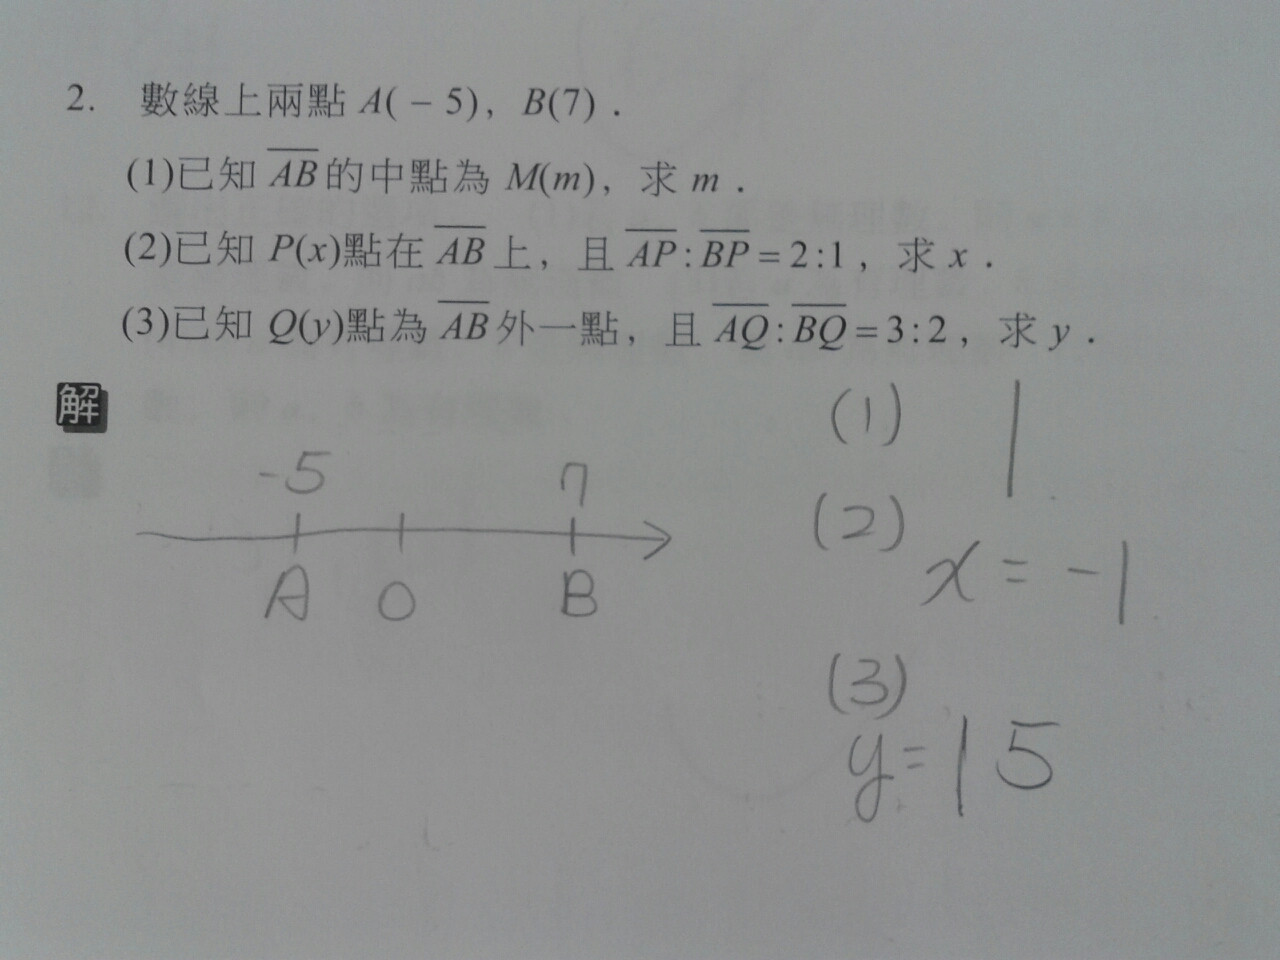 2. 數線上兩點 A(－5), B(7).
(1)已知 AB 的中點為 M(m), 求 m.
(2)已知 P(x)點在 AB 上, 且 AP:BP=2:1, 求 x.
(3)已知 Q(y)點為 AB 外一點, 且 AQ:BQ=3:2, 求 y.
解
-5 7
A O B
(1) 1
(2)
x = -1
(3)
y=15